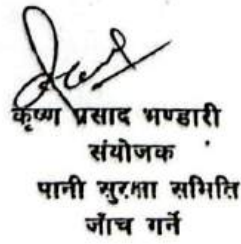 कृष्ण प्रसाद भण्डारी
संयोजक
पानी सुरक्षा समिति
जाँच गर्ने